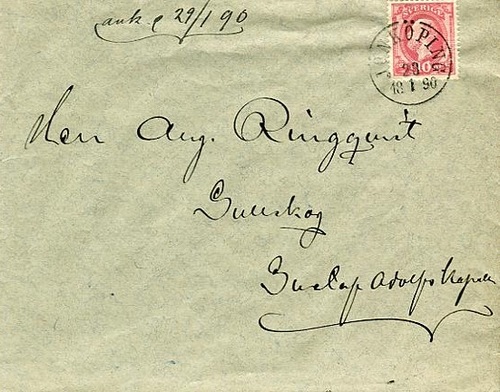 ank. d 29/1 90
SVERIGE
10
JÖNKÖPING
28
1 90
Herr Aug. Ringquist
Gullskog
Gustaf Adolfs Kapell